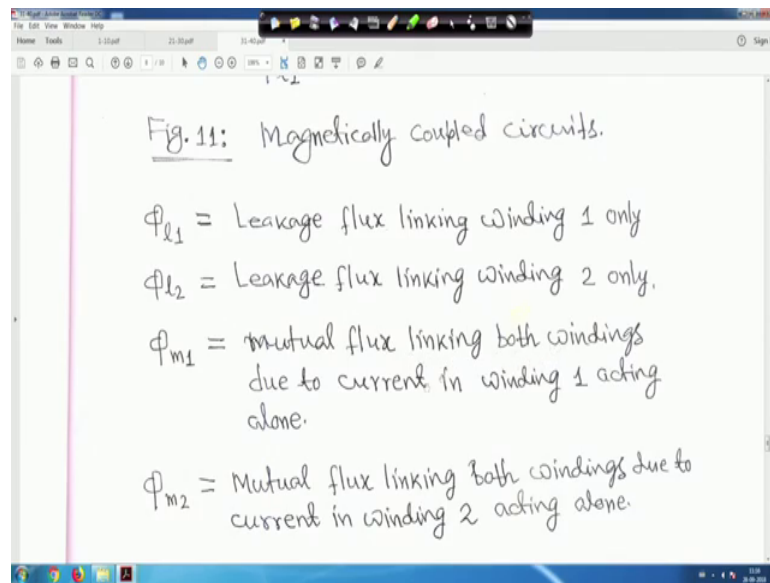 File Edit View Window Help
Home Tools 1-10.pdf 21-30.pdf 31-40.pdf × Sign
Fig. 11: Magnetically coupled circuits.
Φl1 = Leakage flux linking winding 1 only
Φl2 = Leakage flux linking winding 2 only.
Φm1 = mutual flux linking both windings
due to current in winding 1 acting
alone.
Φm2 = Mutual flux linking both windings due to
current in winding 2 acting alone.